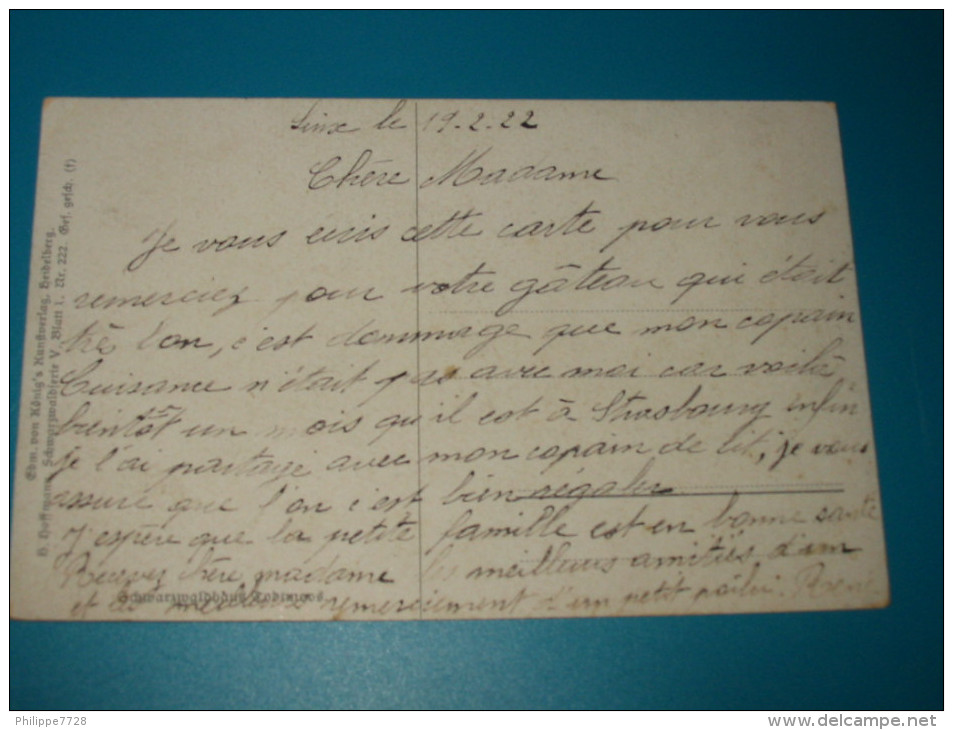 Linx le 19.2.22
Chère Madame
Je vous écris cette carte pour vous
remerciez pour votre gâteau qui était
trè bon, c'est dommage que mon copain
Cuisance n'était pas avec moi car voilà
bientôt un mois qu'il est à Strasbourg enfin
je l'ai partagé avec mon copain de lit, je vous
assure que l'on c'est bien régaler
J'espère que la petite famille est en bonne santé
Recevez chère madame les meilleurs amitiés d'un
et les meilleurs remerciement d'un petit poilu.
Schwarzwaldhaus Todtmoos
H. Hoffmann. Schwarzwaldserie V. Blatt 1. Nr. 222. Ges. gesch. (f)
Edm. von König's Kunstverlag, Heidelberg.
Philippe7728
www.delcampe.net